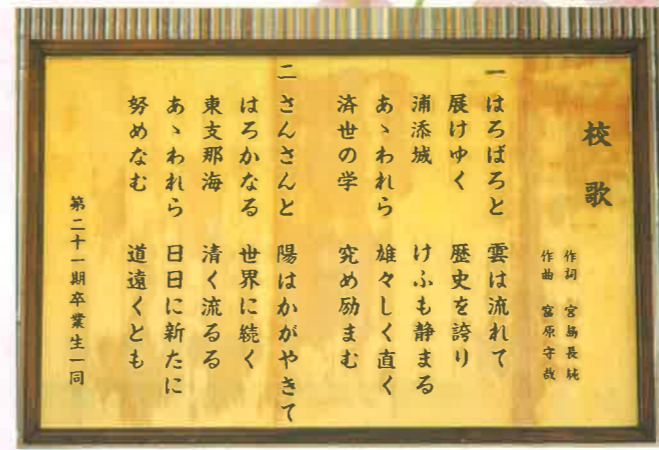 校歌
作詞 宮島長純
作曲 宮原守哉
一 はろばろと 雲は流れて
展けゆく 歴史を誇り
浦添城 けふも静まる
あゝわれら 雄々しく直く
済世の学 究め励まむ
二 さんさんと 陽はかがやきて
はろかなる 世界に続く
東支那海 清く流るる
あゝわれら 日日に新たに
努めなむ 道遠くとも
第二十一期卒業生一同